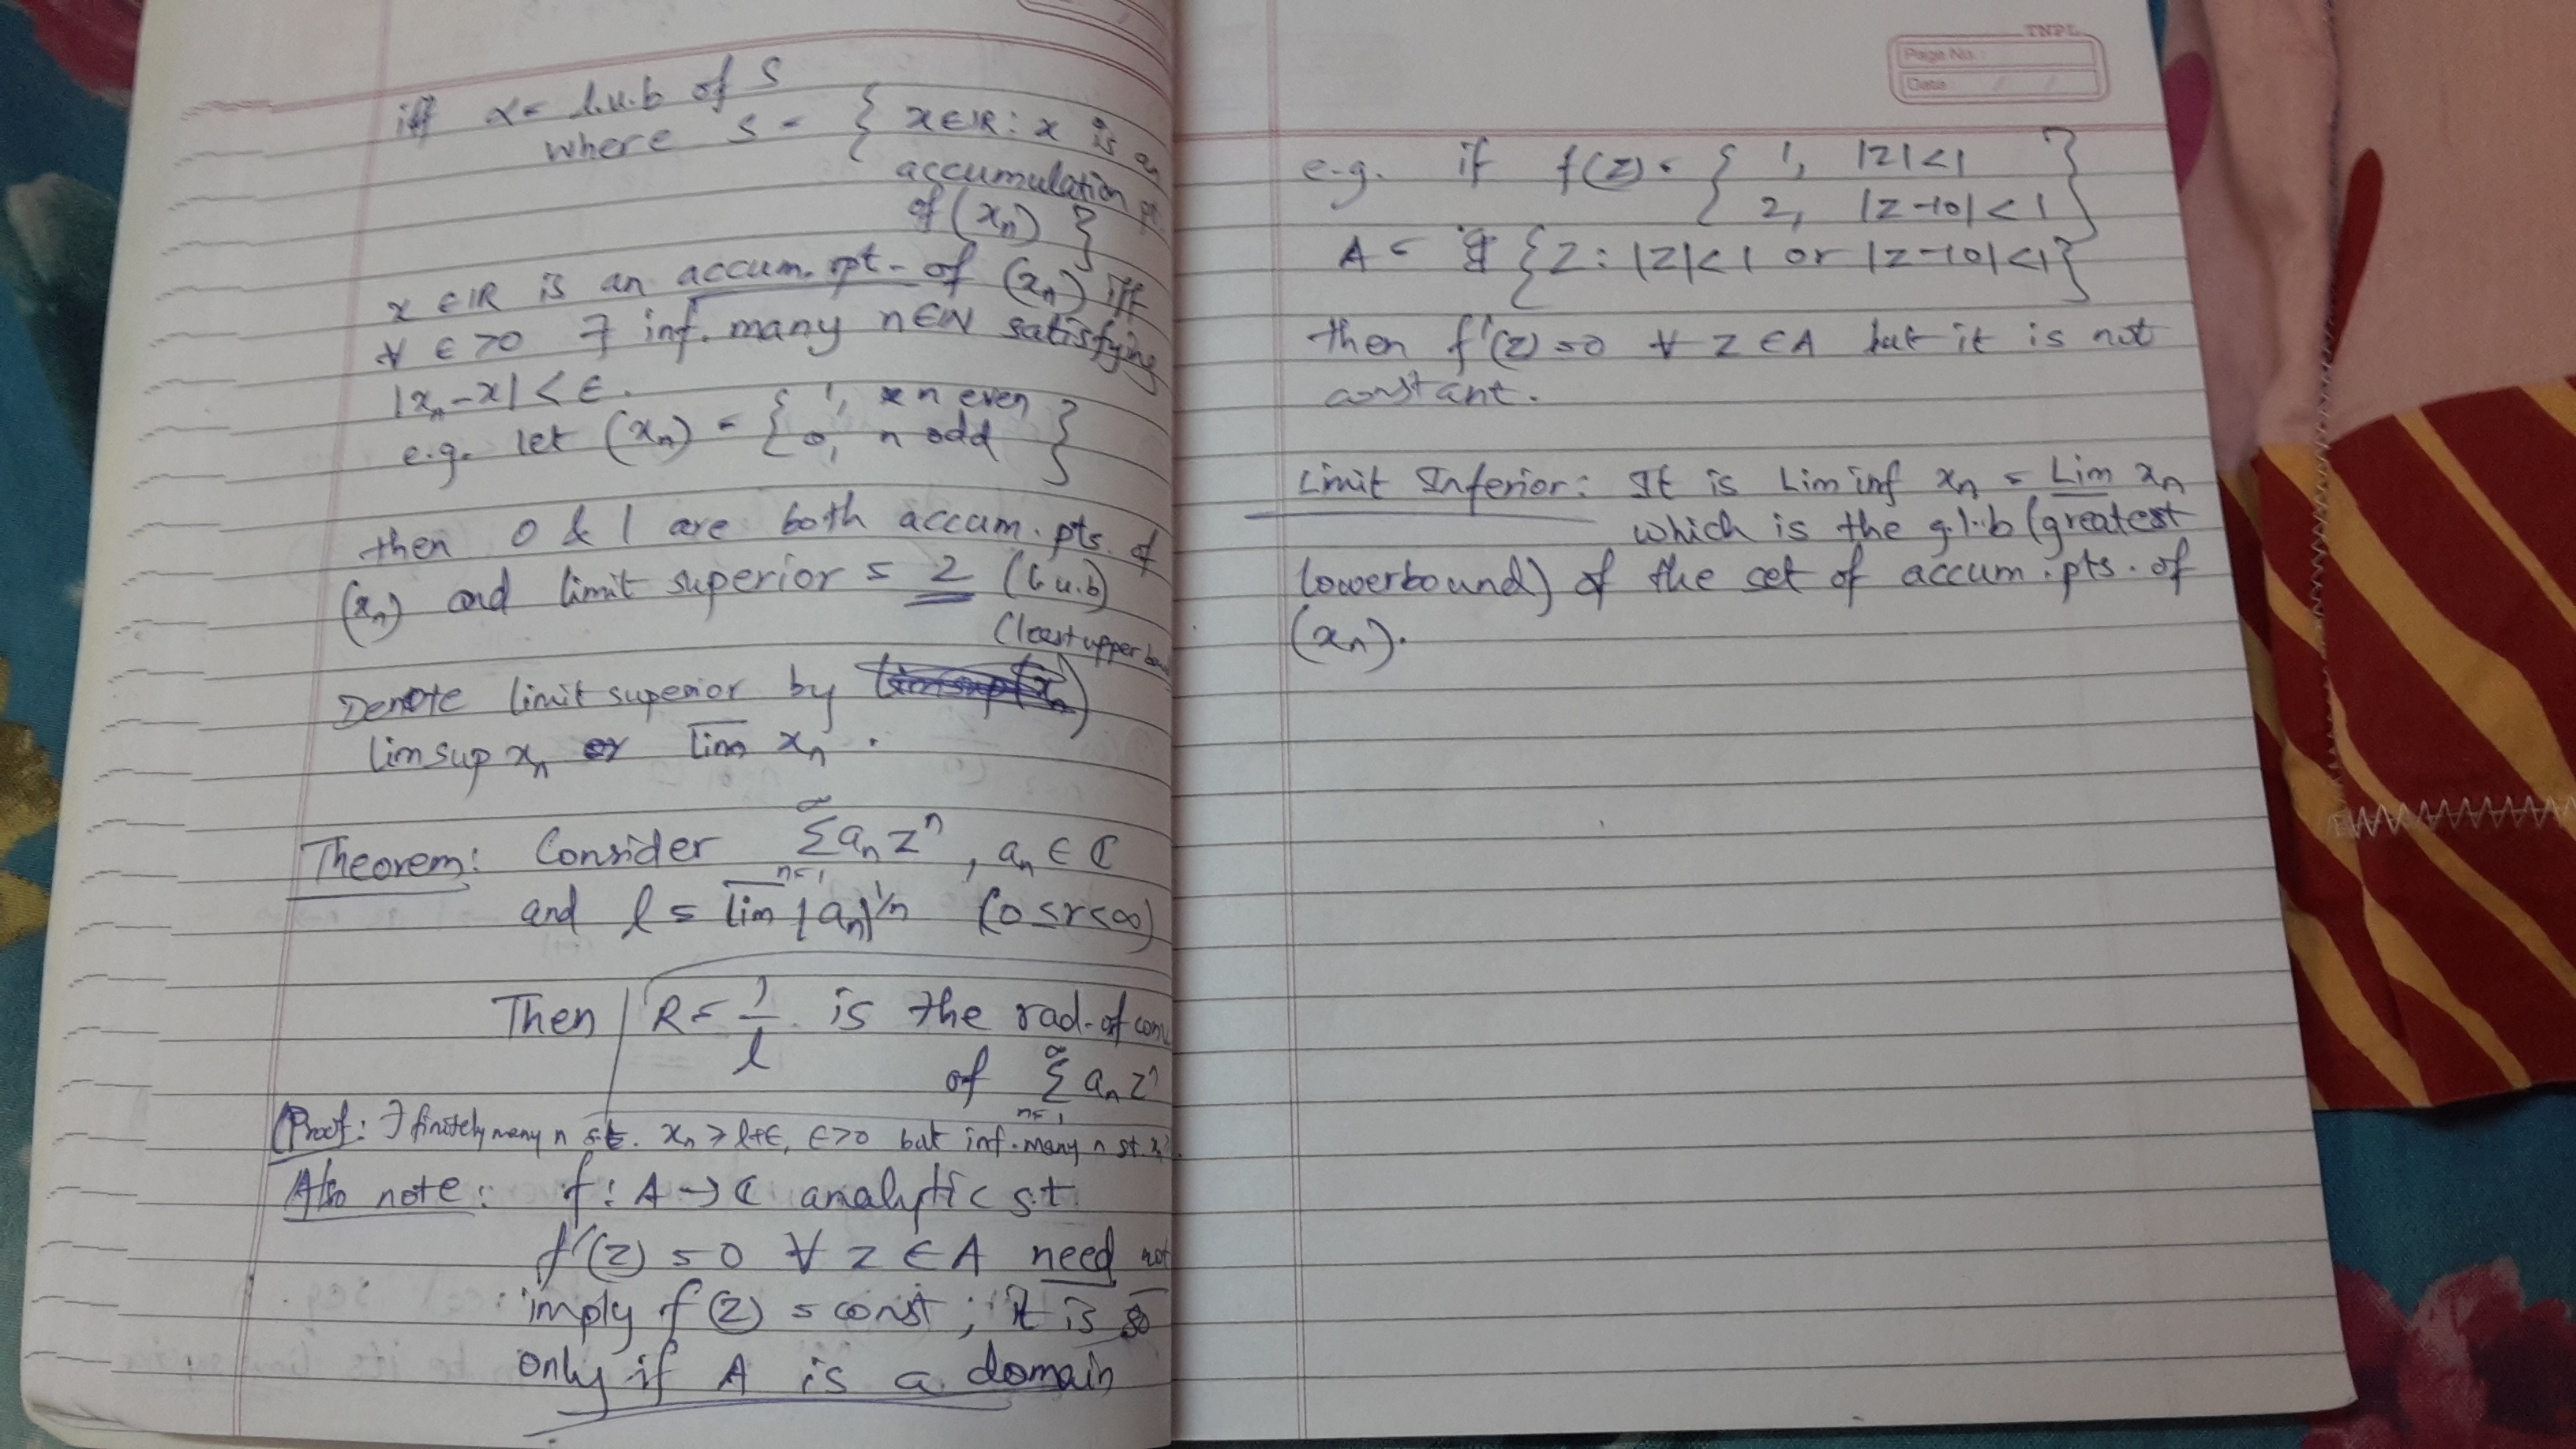 iff α = l.u.b of S
where S = { x∈ℝ : x is an
accumulation pt.
of (xₙ) }
x ∈ℝ is an accum. pt. of (xₙ) iff
∀ ε>0 ∃ inf. many n∈ℕ satisfying
|xₙ-x| < ε.
e.g. let (xₙ) = { 1, n even
0, n odd }
then 0 & 1 are both accum. pts. of
(xₙ) and limit superior = 2 (l.u.b)
(least upper
Denote limit superior by
limsup xₙ or l̅i̅m̅ xₙ .
Theorem: Consider ∞Σn=1 aₙ zⁿ, aₙ ∈ ℂ
and l = l̅i̅m̅ |aₙ|^1/n (0≤r≤∞)
Then R = 1/l is the rad. of conv
of ∞Σn=1 aₙ zⁿ
(Proof: ∃ finitely many n s.t. xₙ > l+ε, ε>0 but inf. many n st.
Also note: f : A → ℂ analytic s.t
f'(z) = 0 ∀ z ∈ A need not
imply f(z) = const ; it is so
only if A is a domain
TNPL
Page No.
Date / /
e.g. if f(z) = { 1, |z|<1
2, |z-10|<1 }
A = {z : |z|<1 or |z-10|<1}
then f'(z) = 0 ∀ z ∈ A but it is not
constant.
Limit Inferior: It is Lim inf xₙ = L̲i̲m̲ xₙ
which is the g.l.b (greatest
lowerbound) of the set of accum. pts. of
(xₙ).